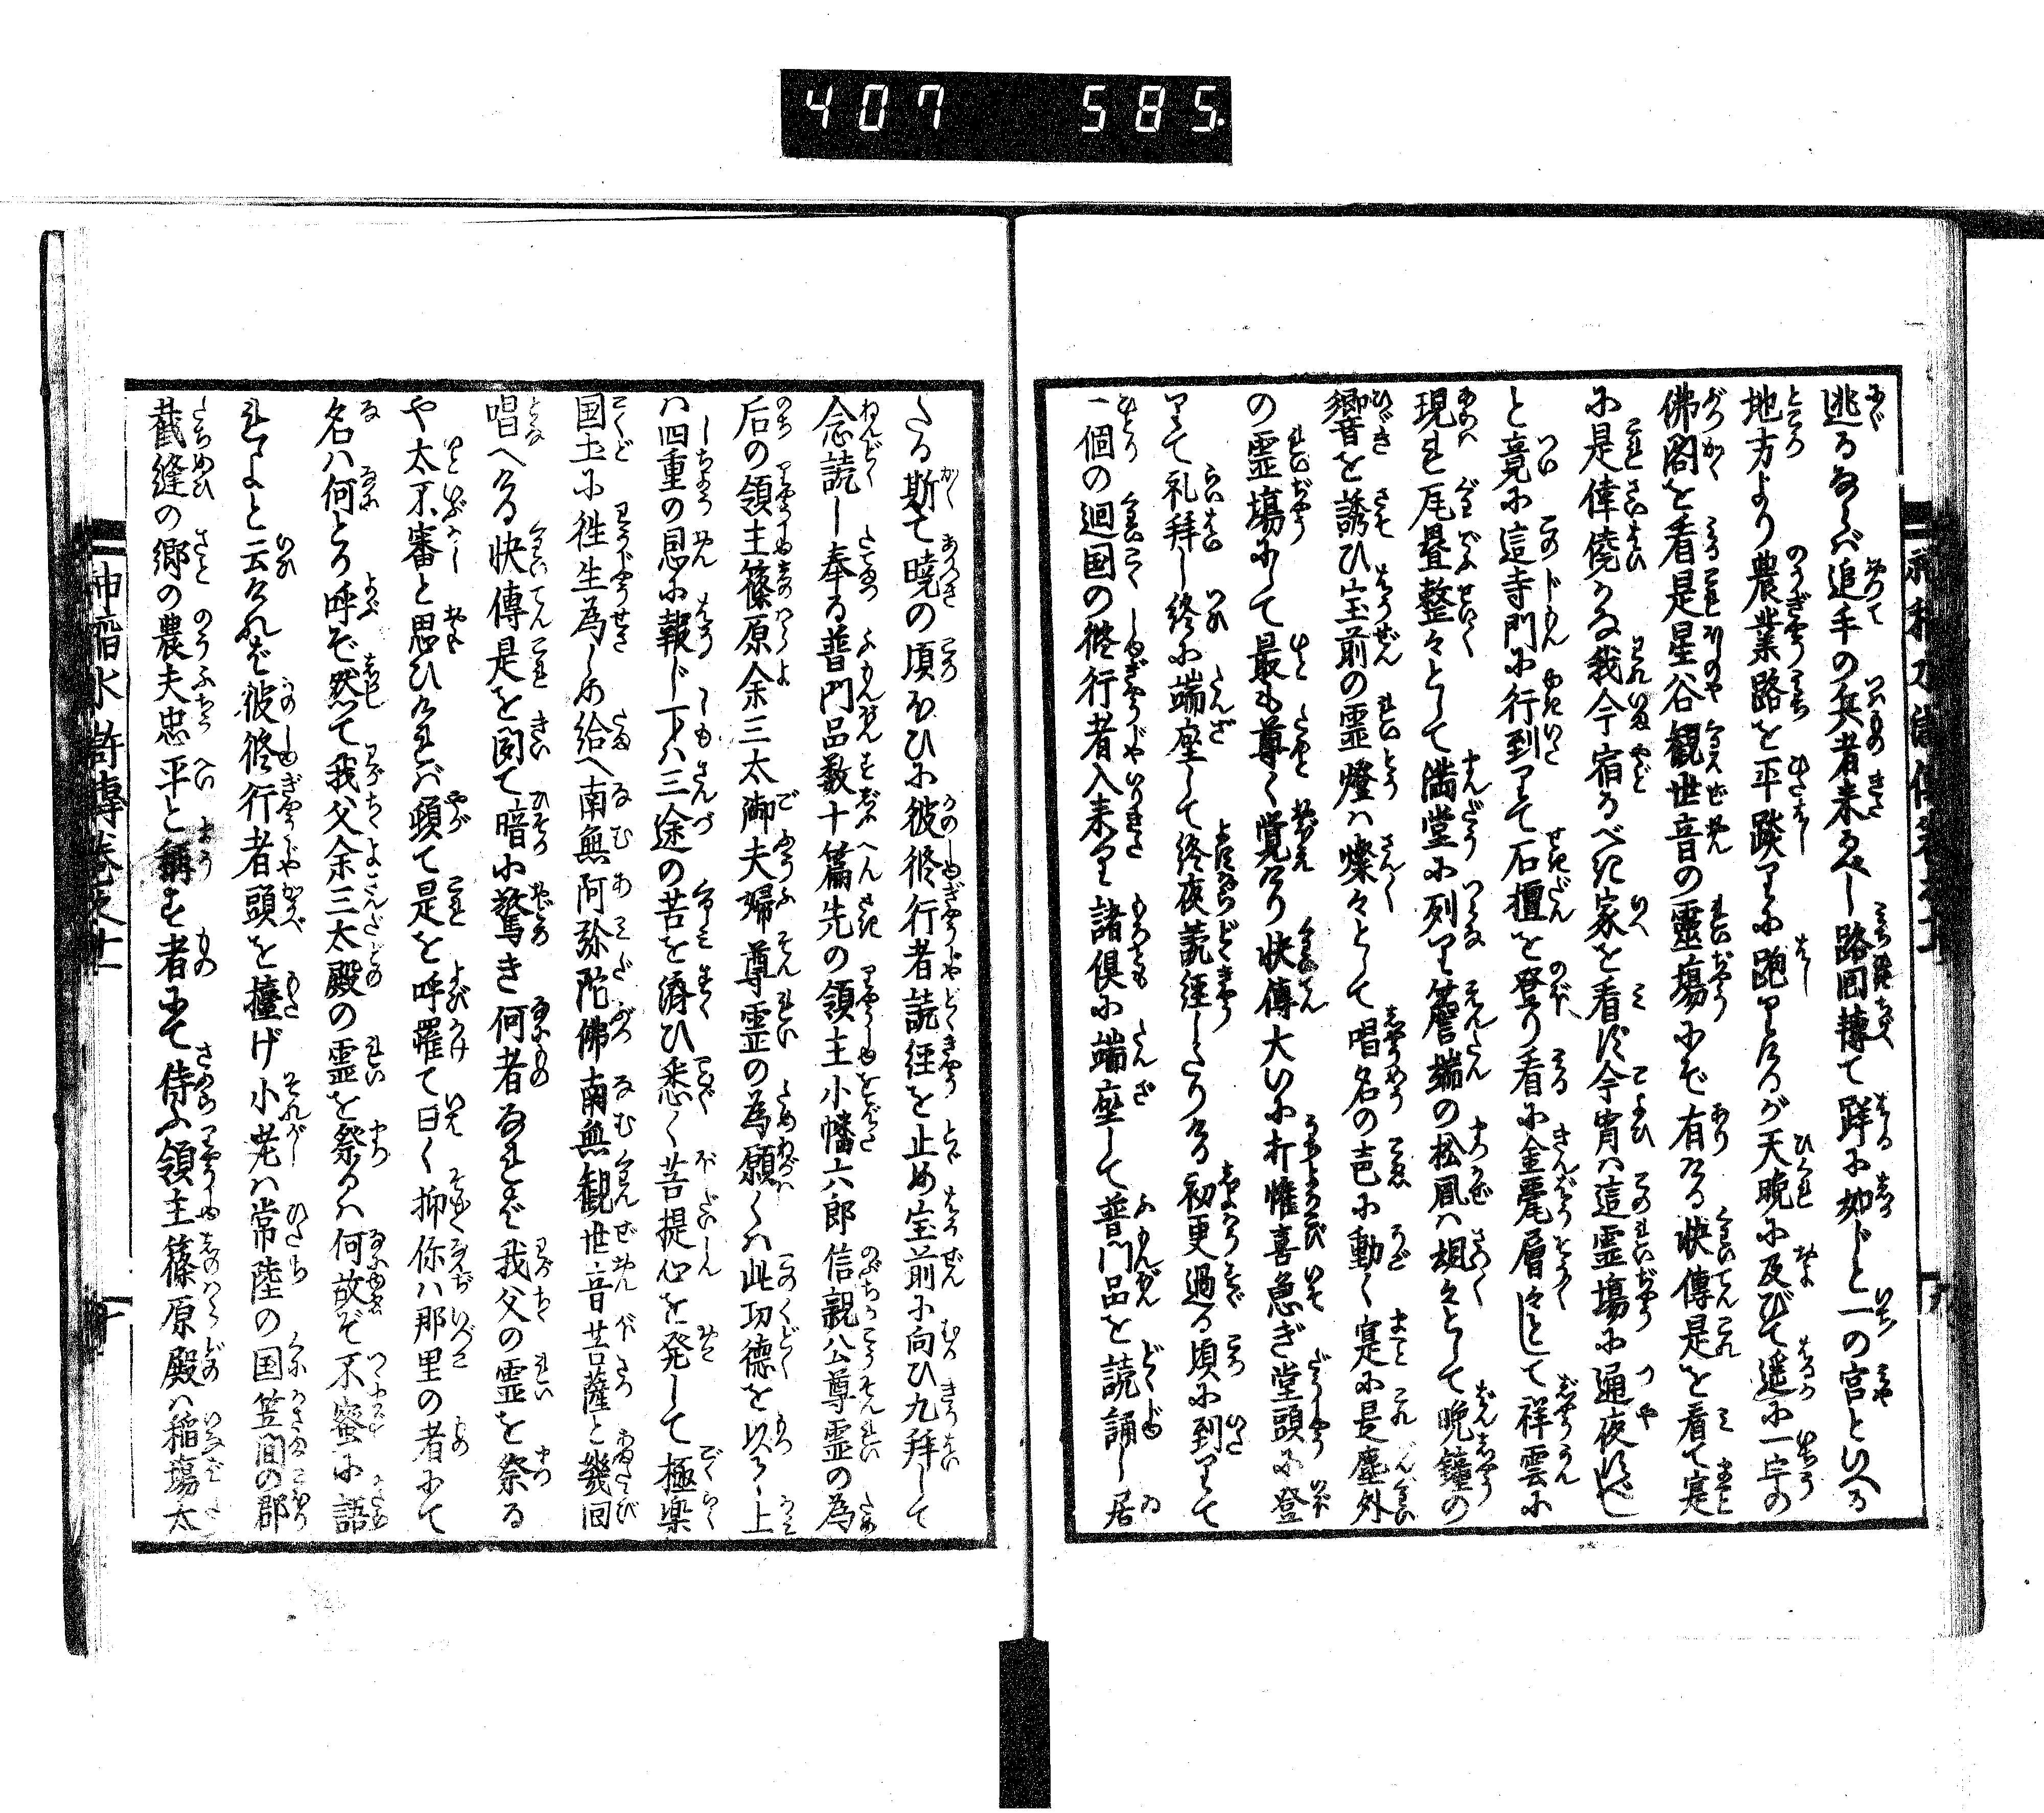 407 585.
逃るならバ追手の兵者来るべし路囘轉て跘に如じと一の宮といへる
地方より農業路を平蹊りに跑りしが天晩に及びて遥に一宇の
佛閣を看是星谷観世音の靈場にぞ有ける快傳是を看て寔
に是偉僥かな我今宿るべき家を看ず今宵ハ這霊場に通夜せじ
と竟に這寺門に行到りて石檀を登り看に金甍層々として祥雲に
現れ瓦畳整々として満堂に列り簷端の松風ハ颯々として晩鐘の
響を誘ひ宝前の霊燈ハ燦々として唱名の声に動く寔に是塵外
の霊場にして最も尊く覚けり快傳大いに打懽喜急ぎ堂頭に登
りて礼拜し終に端座して終夜読経したりける初更過る頃に到りて
一個の廻国の修行者入来り諸倶に端座して普門品を読誦し居
たる斯て曉の頃ほひに彼修行者読経を止め宝前に向ひ九拜して
念読し奉る普門品数十篇先の領主小幡六郎信親公尊霊の為
后の領主篠原余三太御夫婦尊霊の為願くハ此功徳を以て上
ハ四重の恩に報じ下ハ三途の苦を濟ひ悉く菩提心を発して極楽
国土に徃生為しめ給へ南無阿弥陀佛南無観世音菩薩と幾回
唱へける快傳是を聞て暗に驚き何者なれバ我父の霊を祭る
や太不審と思ひけれバ頓て是を呼罹て曰く抑你ハ那里の者にて
名ハ何とか呼ぞ然て我父余三太殿の霊を祭るハ何故ぞ不蜜に語
れかしと云けれバ彼修行者頭を擡げ小老ハ常陸の国笠間の郡
截縫の郷の農夫忠平と稱す者にて侍ふ領主篠原殿ハ稲塲太
神稻水滸傳巻之廿